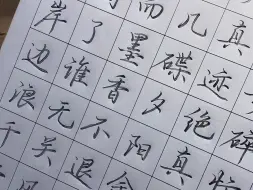 而几真
岸了墨碟迹
边谁香夕绝碎
浪无不阳真
千关退